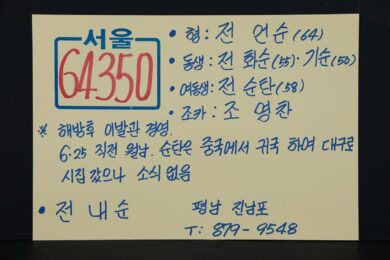 서울
64350
• 형: 전 언순(64)
• 동생: 전 화순(55)·기순(50)
• 여동생: 전 순탄(58)
• 조카: 조 영찬
※ 해방후 이발관 경영.
6·25 직전 월남. 순탄은 중국에서 귀국 하여 대구로
시집 갔으나 소식 없음
• 전 내순 평남 진남포
T: 879-9548